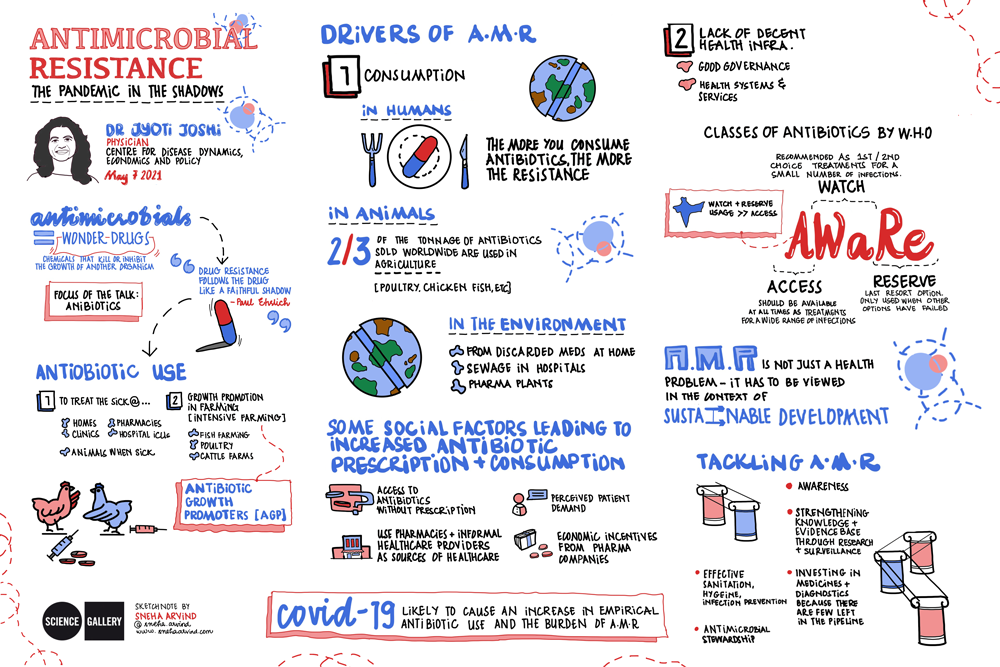 ANTIMICROBIAL
RESISTANCE
THE PANDEMIC IN THE SHADOWS
DR JYOTI JOSHI
PHYSICIAN
CENTRE FOR DISEASE DYNAMICS,
ECONOMICS AND POLICY
May 7 2021
antimicrobials
WONDER-DRUGS
CHEMICALS THAT KILL OR INHIBIT
THE GROWTH OF ANOTHER ORGANISM
FOCUS OF THE TALK:
ANIBIOTICS
DRUG RESISTANCE
FOLLOWS THE DRUG
LIKE A FAITHFUL SHADOW
- Paul Ehrlich
ANTIOBIOTIC USE
1 TO TREAT THE SICK@...
HOMES
CLINICS
PHARMACIES
HOSPITAL ICUs
ANIMALS WHEN SICK
2 GROWTH PROMOTION
IN FARMING
[INTENSIVE FARMING]
FISH FARMING
POULTRY
CATTLE FARMS
ANTIBIOTIC
GROWTH
PROMOTERS [AGP]
SCIENCE GALLERY
SKETCHNOTE BY
SNEHA ARVIND
@ sneha arvind
www. snehaarvind.com
DRIVERS OF A.M.R
1 CONSUMPTION
IN HUMANS
THE MORE YOU CONSUME
ANTIBIOTICS, THE MORE
THE RESISTANCE
IN ANIMALS
2/3 OF THE TONNAGE OF ANTIBIOTICS
SOLD WORLDWIDE ARE USED IN
AGRICULTURE
[POULTRY, CHICKEN FISH, ETC]
IN THE ENVIRONMENT
FROM DISCARDED MEDS AT HOME
SEWAGE IN HOSPITALS
PHARMA PLANTS
SOME SOCIAL FACTORS LEADING TO
INCREASED ANTIBIOTIC
PRESCRIPTION + CONSUMPTION
ACCESS TO
ANTIBIOTICS
WITHOUT PRESCRIPTION
PERCEIVED PATIENT
DEMAND
USE PHARMACIES + INFORMAL
HEALTHCARE PROVIDERS
AS SOURCES OF HEALTHCARE
ECONOMIC INCENTIVES
FROM PHARMA
COMPANIES
covid-19 LIKELY TO CAUSE AN INCREASE IN EMPIRICAL
ANTIBIOTIC USE AND THE BURDEN OF A.M.R
2 LACK OF DECENT
HEALTH INFRA.
GOOD GOVERNANCE
HEALTH SYSTEMS &
SERVICES
CLASSES OF ANTIBIOTICS BY W.H.O
RECOMMENDED AS 1ST / 2ND
CHOICE TREATMENTS FOR A
SMALL NUMBER OF INFECTIONS.
WATCH
WATCH + RESERVE
USAGE >> ACCESS
AWaRe
ACCESS
SHOULD BE AVAILABLE
AT ALL TIMES AS TREATMENTS
FOR A WIDE RANGE OF INFECTIONS
RESERVE
LAST RESORT OPTION.
ONLY USED WHEN OTHER
OPTIONS HAVE FAILED
A.M.R IS NOT JUST A HEALTH
PROBLEM - IT HAS TO BE VIEWED
IN THE CONTEXT OF
SUSTAINABLE DEVELOPMENT
TACKLING A.M.R
AWARENESS
STRENGTHENING
KNOWLEDGE +
EVIDENCE BASE
THROUGH RESEARCH
+ SURVEILLANCE
EFFECTIVE
SANITATION,
HYGEINE,
INFECTION PREVENTION
INVESTING IN
MEDICINES +
DIAGNOSTICS
BECAUSE THERE
ARE FEW LEFT
IN THE PIPELINE
ANTIMICROBIAL
STEWARDSHIP